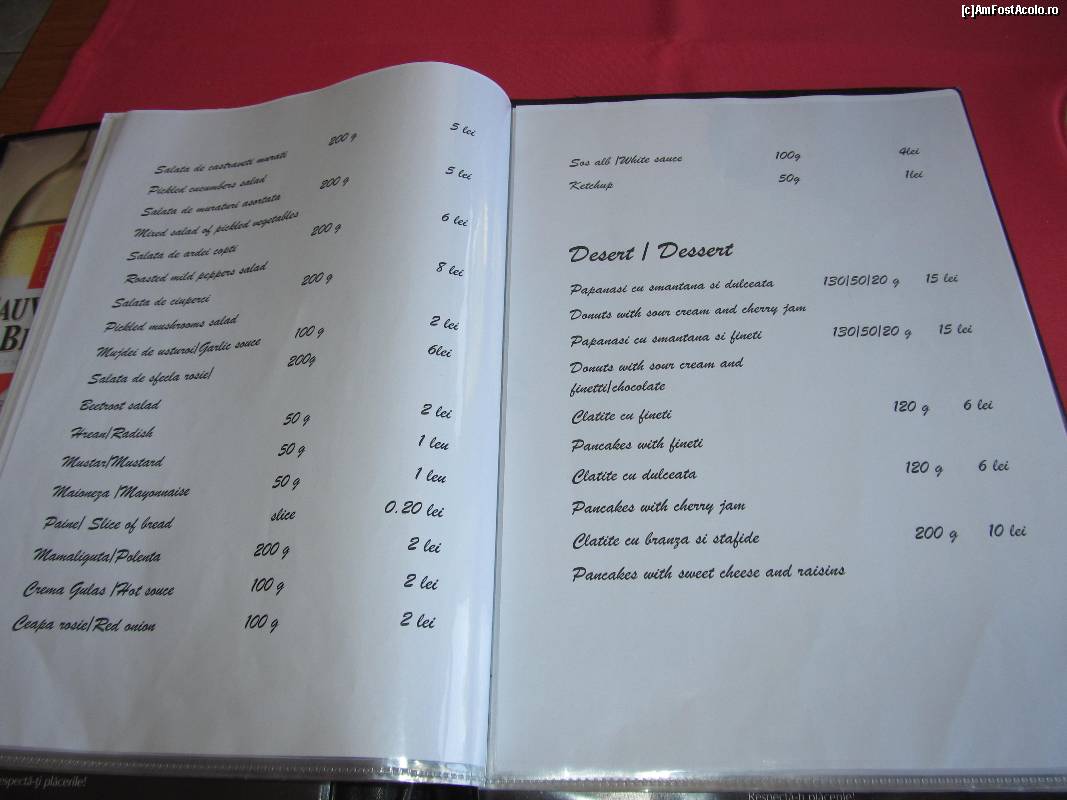 [c]AmFostAcolo.ro
Salata de castraveti murati 200 g 5 lei
Pickled cucumbers salad
Salata de muraturi asortata 200 g 5 lei
Mixed salad of pickled vegetables
Salata de ardei copti 200 g 6 lei
Roasted mild peppers salad
Salata de ciuperci 200 g 8 lei
Pickled mushrooms salad
Mujdei de usturoi/Garlic souce 100 g 2 lei
Salata de sfecla rosie/ 200g 6lei
Beetroot salad
Hrean/Radish 50 g 2 lei
Mustar/Mustard 50 g 1 leu
Maioneza /Mayonnaise 50 g 1 leu
Paine/ Slice of bread slice 0.20 lei
Mamaliguta/Polenta 200 g 2 lei
Crema Gulas /Hot souce 100 g 2 lei
Ceapa rosie/Red onion 100 g 2 lei
Sos alb /White sauce 100g 4lei
Ketchup 50g 1lei
Desert / Dessert
Papanasi cu smantana si dulceata 130/50/20 g 15 lei
Donuts with sour cream and cherry jam
Papanasi cu smantana si fineti 130/50/20 g 15 lei
Donuts with sour cream and
finetti/chocolate
Clatite cu fineti 120 g 6 lei
Pancakes with fineti
Clatite cu dulceata 120 g 6 lei
Pancakes with cherry jam
Clatite cu branza si stafide 200 g 10 lei
Pancakes with sweet cheese and raisins
espectă-ți plăcerile!
Respectă-ți plăcerile!